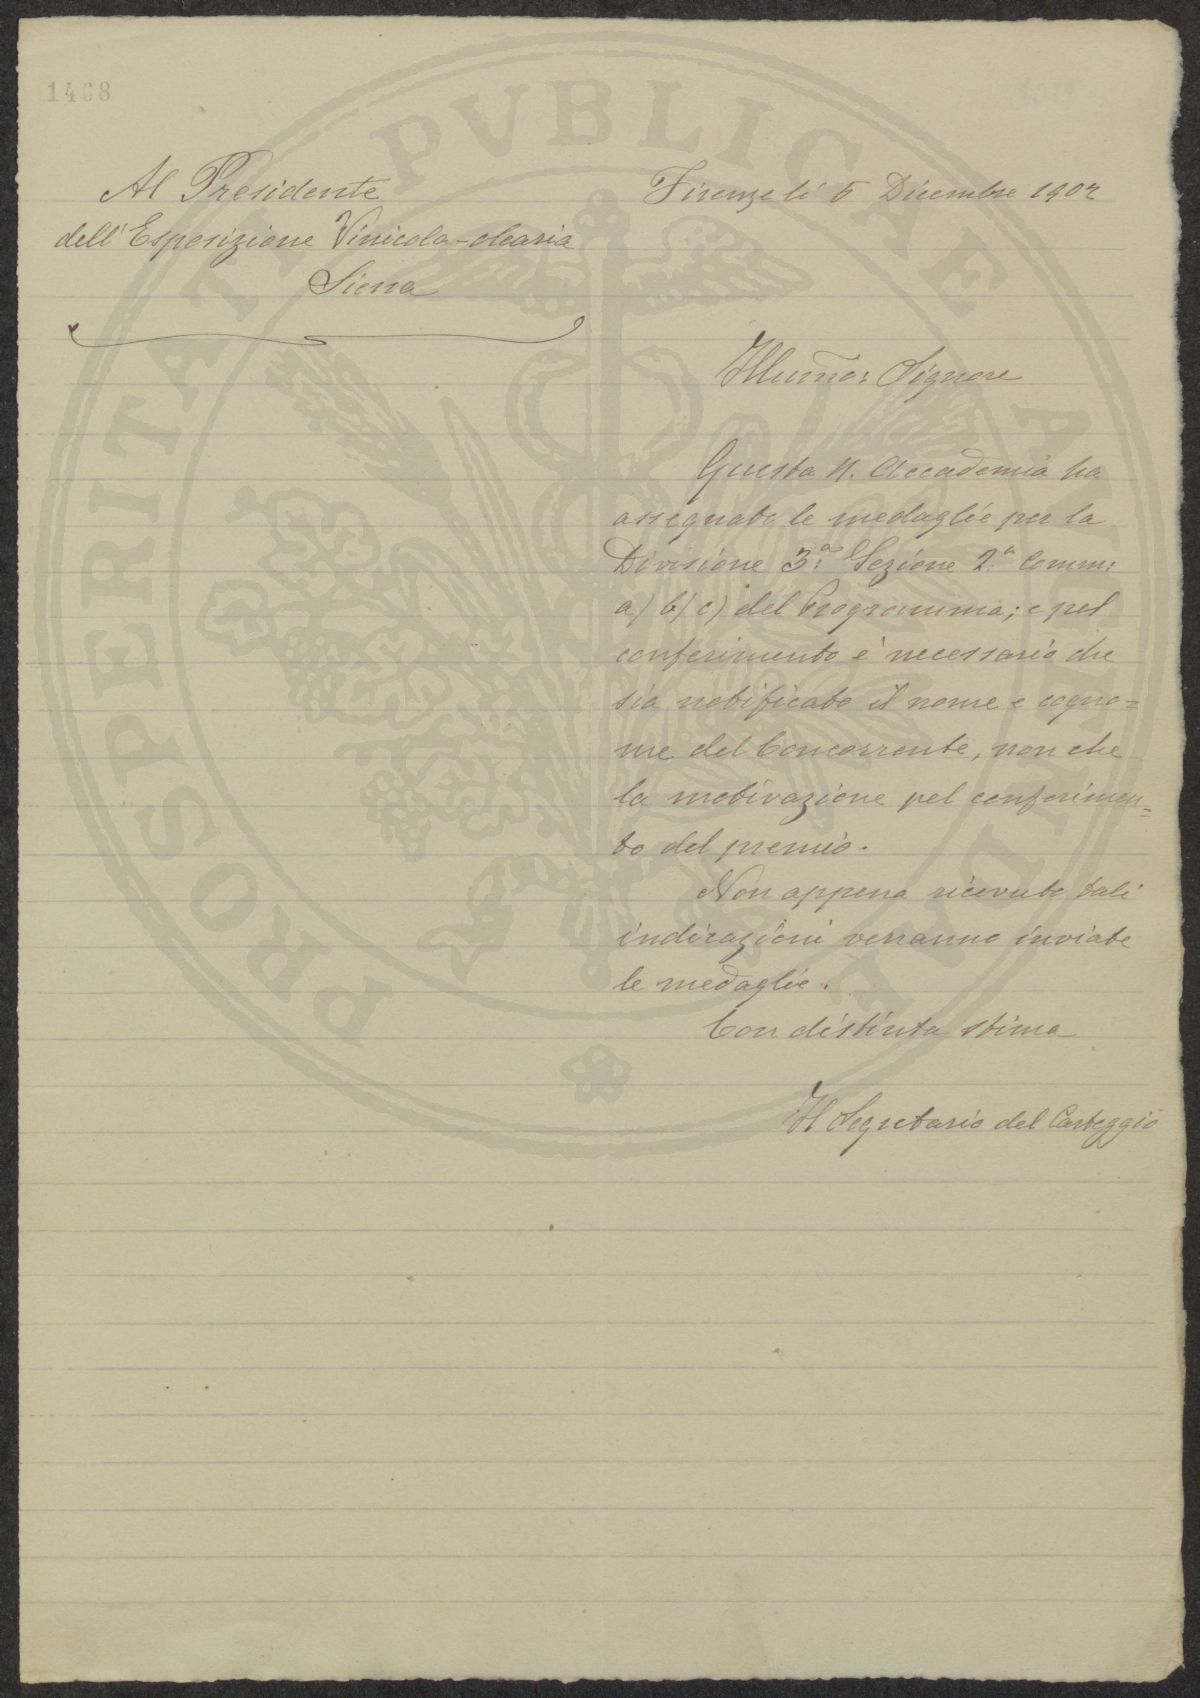 1468
Al Presidente
dell'Esposizione Vinicola-olearia
Siena
Firenze lí 5 Dicembre 1902
Illumo: Signore
Questa R. Accademia ha
assegnato le medaglie per la
Divisione 3.a Sezione 2.a Comm:
a) b) c) del Programma; e pel
conferimento é necessario che
sia notificato il nome e cogno=
me del Concorrente, non che
la motivazione pel conferimen=
to del premio.
Non appena ricevute tali
indicazioni verranno inviate
le medaglie.
Con distinta stima
Il Segretario del Carteggio
PROSPERITATI PVBLICAE AVGENDAE